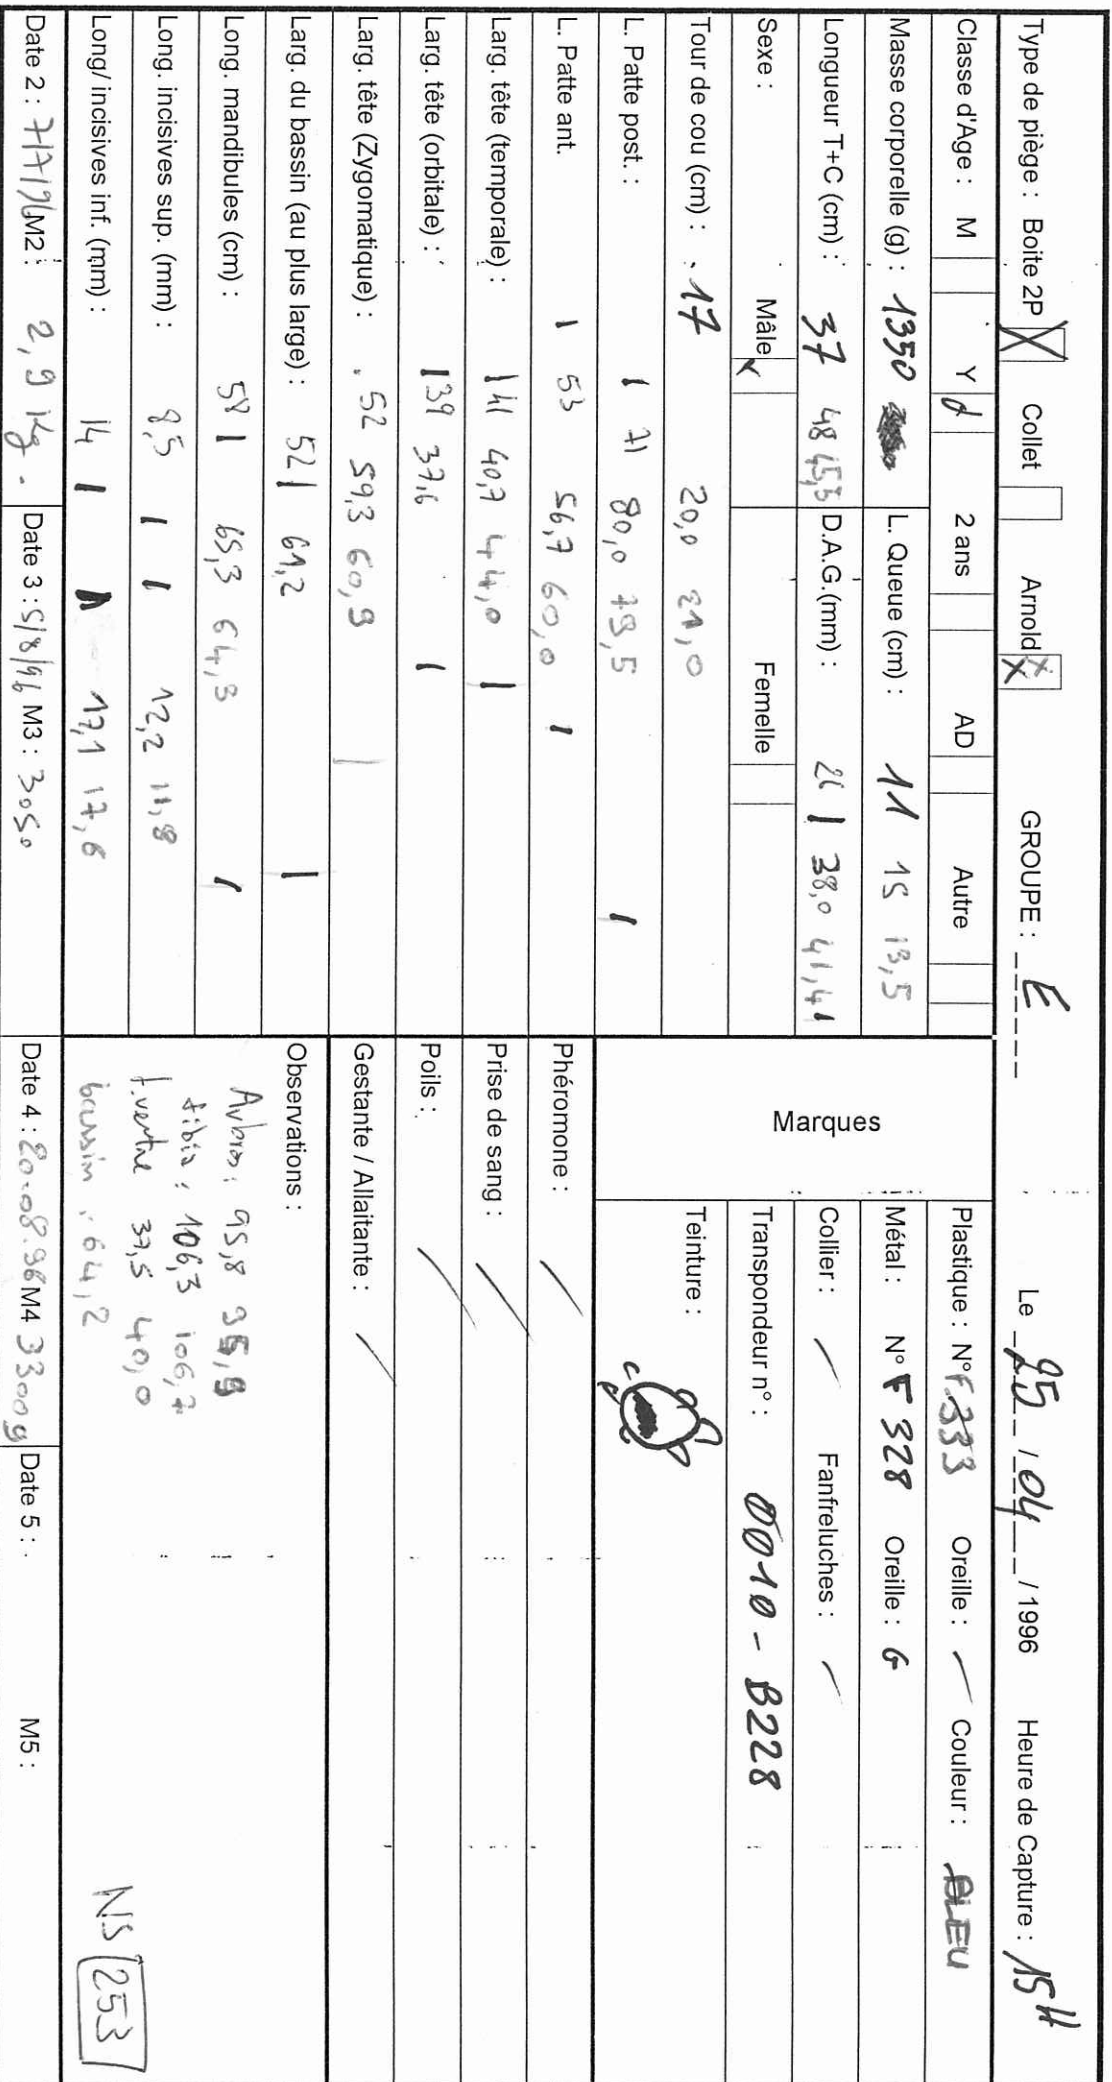 Type de piège : Boite 2P X Collet Arnold X GROUPE : E Le 25 / 04 / 1996 Heure de Capture : 15H
Classe d'Age : M Y d 2 ans AD Autre
Masse corporelle (g) : 1350 L. Queue (cm) : 11 15 13,5
Longueur T+C (cm) : 37 48 45,5 D.A.G.(mm) : 26 38,0 41,4
Sexe : Mâle x Femelle
Tour de cou (cm) : 17 20,0 21,0
L. Patte post. : 71 80,0 79,5
L. Patte ant. 53 56,7 60,0
Larg. tête (temporale) : 41 40,7 44,0
Larg. tête (orbitale) : 39 37,6
Larg. tête (Zygomatique) : 52 59,3 60,9
Larg. du bassin (au plus large) : 52 61,2
Long. mandibules (cm) : 58 65,3 64,3
Long. incisives sup. (mm) : 8,5 12,2 11,8
Long/ incisives inf. (mm) : 14 17,1 17,6
Marques
Plastique : N° F.333 Oreille : Couleur : BLEU
Métal : N° F 328 Oreille : G
Collier : Fanfreluches :
Transpondeur n° : 0010 - B228
Teinture :
Phéromone :
Prise de sang :
Poils :
Gestante / Allaitante :
Observations :
95,8
tibia : 106,3 106,7
37,5 40,0
bassin : 64,2
NS 253
Date 2 : 7/7/96 M2 : 2,9 Kg. Date 3 : 5/8/96 M3 : 3050 Date 4 : 20.08.96 M4 3300g Date 5 : M5 :